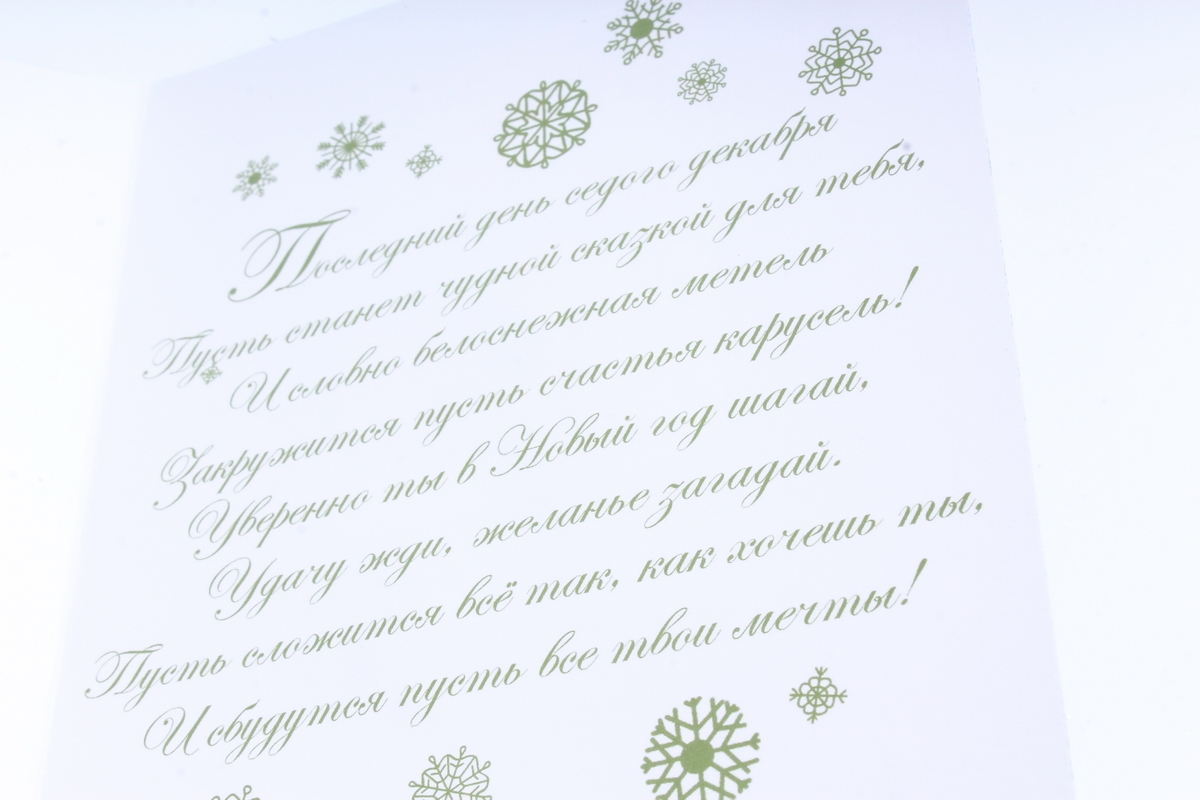 Последний день седого декабря
Пусть станет чудной сказкой для тебя,
И словно белоснежная метель
Закружится пусть счастья карусель!
Уверенно ты в Новый год шагай,
Удачу жди, желанье загадай.
Пусть сложится всё так, как хочешь ты,
И сбудутся пусть все твои мечты!